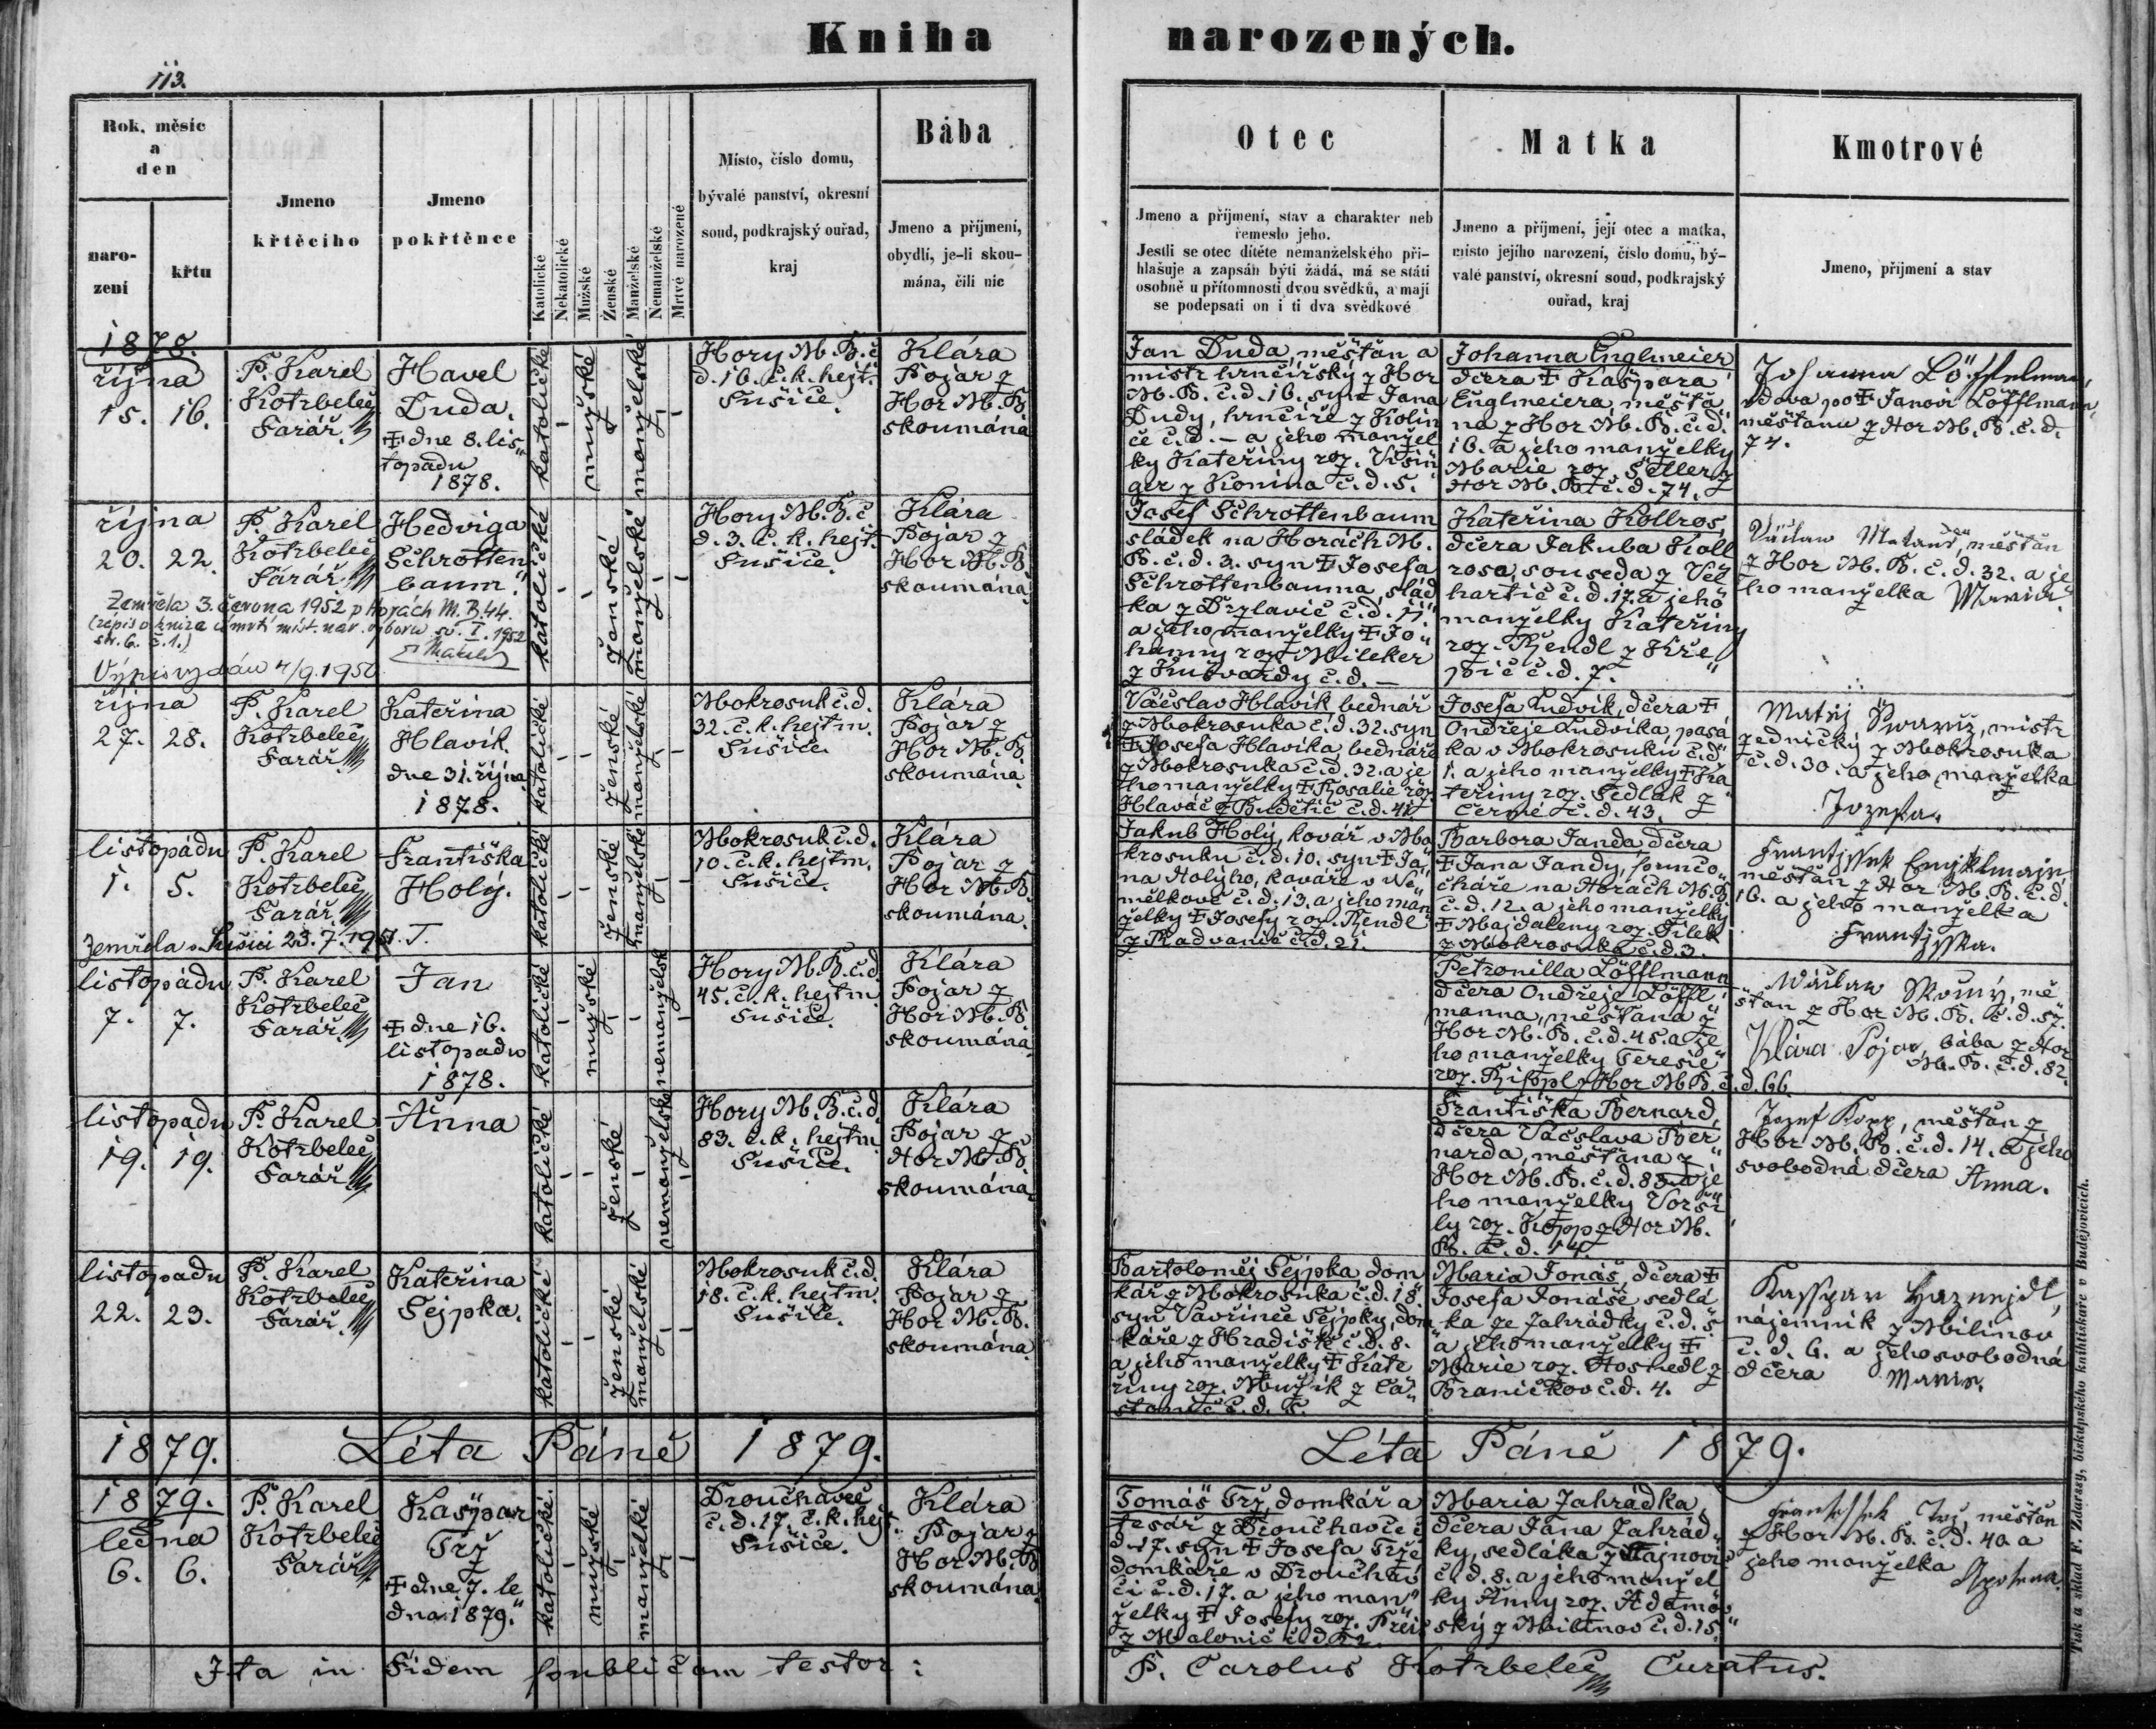 Kniha narozených.
113.
Rok, měsíc
a
den
naro-
zení
křtu
Jmeno
křtěcího
Jmeno
pokřtěnce
Katolické
Nekatolické
Mužské
Ženské
Manželské
Nemanželské
Mrtvě narozené
Místo, číslo domu,
bývalé panství, okresní
soud, podkrajský ouřad,
kraj
Bába
Jmeno a příjmení,
obydlí, je-li skou-
mána, čili nic
Otec
Jmeno a příjmení, stav a charakter neb
řemeslo jeho.
Jestli se otec dítěte nemanželského při-
hlašuje a zapsán býti žádá, má se státi
osobně u přítomnosti dvou svědků, a mají
se podepsati on i ti dva svědkové
Matka
Jmeno a příjmení, její otec a matka,
místo jejího narození, číslo domu, bý-
valé panství, okresní soud, podkrajský
ouřad, kraj
Kmotrové
Jmeno, příjmení a stav
1878.
října
15. 16.
P. Karel
Kotrbeleč
Farář.
Havel
Duda.
‡ dne 8. lis„
topadu
1878.
katolické
mužské
manželské
Hory M. B. č
d. 16. c. k. hejt.
Sušice.
Klára
Pojar z
Hor M. B.
skoumána
Jan Duda, měšťan a
mistr hrnčířský z Hor
M. B. č. d. 16. syn Jana
Dudy, hrnčíře z Kolin
če č. d. – a jeho manžel
ky Kateřiny roz.
ger z Konína č. d. 5.
Johanna Englmeier
dčera ‡ Kašpara
Englmeiera, měšťa„
na z Hor M. B. č. d.
16. a jeho manželky
Marie roz.
Hor M. B. č. d. 74.
Johanna Löfflman,
vdova po ‡ Janovi Löfflmann,
měšťanu z Hor M. B. č. d.
74.
října
20. 22.
P. Karel
Kotrbeleč
Farář.
Hedviga
Schrotten
baum.
Zemřela 3. června 1952 v Horách M. B. 44.
(zápis v knize úmrtí míst. nár. výboru sv. I. 1952
str. 6. č. 1.)
Výpis vydán 4/9. 1950
katolické
ženské
manželské
Hory M. B. č
d. 3. c. k. hejt.
Sušice.
Klára
Pojar z
Hor M. B.
skoumána
Josef Schrottenbaum
sládek na Horách M.
B. č. d. 3. syn ‡ Josefa
Schrottenbauma, slád
ka z Držlavic č. d. 11.
a jeho manželky ‡ Jo„
hanny roz. Mileker
z Kušvardy č. d. –
Kateřina Kollros,
dčera Jakuba Koll
rosa, souseda z Vel
hartic č. d. 17. a jeho
manželky Kateřiny
roz. Rendl z Kře„
pic č. d. 7.
Václaw Matauš, měšťan
z Hor M. B. č. d. 32. a je
ho manželka Maria
října
27. 28.
P. Karel
Kotrbeleč
Farář.
Kateřina
Hlavík.
dne 31. října
1878.
katolické
ženské
manželské
Mokrosuk č. d.
32. c. k. hejtm.
Sušice.
Klára
Pojar z
Hor M. B.
skoumána
Václav Hlavík bednář
z Mokrosuka č. d. 32. syn
‡ Josefa Hlavíka bednáře
z Mokrosuka č. d. 32. a je
ho manželky ‡ Rosalie roz.
Hlaváč z Budětic č. d. 41.
Josefa Ludvík, dčera ‡
Ondřeje Ludvíka, pasá
ka v Mokrosuku č. d.
1. a jeho manželky ‡ Ka
teřiny roz. Sedlák z
Černé č. d. 43.
Matěj, mistr
zednický z Mokrosuka
č. d. 30. a jeho manželka
Jozefa.
listopadu
1. 5.
P. Karel
Kotrbeleč
Farář.
Františka
Holý.
Zemřela v Sušici 23. 7. 1951. T.
katolické
ženské
manželské
Mokrosuk č. d.
10. c. k. hejtm.
Sušice.
Klára
Pojar z
Hor M. B.
skoumána.
Jakub Holý, kovář v Mo
krosuku č. d. 10. syn ‡ Ja„
na Holýho, kováře v Ne„
mělkově č. d. 13. a jeho man
želky ‡ Josefy roz. Rendl
z Radvanic č. d. 21.
Barbora Janda dčera
‡ Jana Jandy, punčo„
cháře na Horách M. B.
č. d. 12. a jeho manželky
‡ Majdaleny roz. Fílek
z Mokrosuka č. d. 3.
Frantjssek
měšťan z Hor M. B. č. d.
16. a jeho manželka
Frantjsska.
listopadu
7. 7.
P. Karel
Kotrbeleč
Farář.
Jan
‡ dne 16.
listopadu
1878.
katolické
mužské
nemanželsk
Hory M. B. č. d.
45. c. k. hejtm.
Sušice.
Klára
Pojar z
Hor M. B.
skoumána
Petronilla Löfflmann
dčera Ondřeje Löffl„
manna, měšťana z
Hor M. B. č. d. 45. a je
ho manželky Teresie
roz. z Hor M. B. č. d. 66.
Wáclaw, mě
šťan z Hor M. B. č. d. 57.
Klára Pojar, bába z Hor
M. B. č. d. 82.
listopadu
19. 19.
P. Karel
Kotrbeleč
Farář.
Anna
katolické
ženské
nemanželské
Hory M. B. č. d.
83. c. k. hejtm.
Sušice.
Klára
Pojar z
Hor M. B.
skoumána
Františka Bernard,
dčera Václava Ber„
narda, měšťana z
Hor M. B. č. d. 83. a je
ho manželky Vorši
ly roz. Kopp z Hor M.
B. č. d. 14.
Jozef Kopp, měšťan z
Hor M. B. č. d. 14. a jeho
svobodná dčera Anna.
listopadu
22. 23.
P. Karel
Kotrbeleč
Farář.
Kateřina
Sejpka.
katolické
ženské
manželské
Mokrosuk č. d.
18. c. k. hejtm.
Sušice.
Klára
Pojar z
Hor M. B.
skoumána
Bartoloměj Sejpka, dom
kář z Mokrosuka č. d. 18.
syn Vavřince Sejpky, dom
káře z Hradiště č. d. 8.
a jeho manželky ‡ Kate
řiny roz. Mužík z Ča„
stonic č. d. 5.
Maria Jonáš, dčera ‡
Josefa Jonáše sedlá
ka ze Zahrádky č. d. 5
a jeho manželky ‡
Marie roz. Hosnedl z
Braníčkov č. d. 4.
Kasspar Haznejdl,
nájemník z Milínov
č. d. 6. a jeho svobodná
dčera Maria.
1879. Léta Páně 1879.
Léta Páně 1879.
1879.
ledna
6. 6.
P. Karel
Kotrbeleč
Farář
Kašpar
Trž
‡ dne 7. le
dna 1879.
katolické
mužské
manželké
Drouhaveč
č. d. 17. c. k. hejt.
Sušice.
Klára
Pojar z
Hor M. B.
skoumána
Tomáš Trž, domkář a
tesář z Drouhavče č
d. 17. syn ‡ Josefa Trže
domkáře v Drouhav
či č. d. 17. a jeho man„
želky ‡ Josefy roz.
z Malonic č. d.
Maria Zahrádka,
dčera Jana Zahrád„
ky, sedláka z Tajnovic
č. d. 8. a jeho manžel
ky Anny roz. Adamov
ský z Milínov č. d. 15.
Frantissek Trž, měšťan
z Hor M. B. č. d. 40. a
jeho manželka Apolena.
Ita in fidem publicam testor:
P. Carolus Kotrbeleč Curatus.
Tisk a sklad F. Zdarssy, biskupského knihtiskaře v Budějovicích.